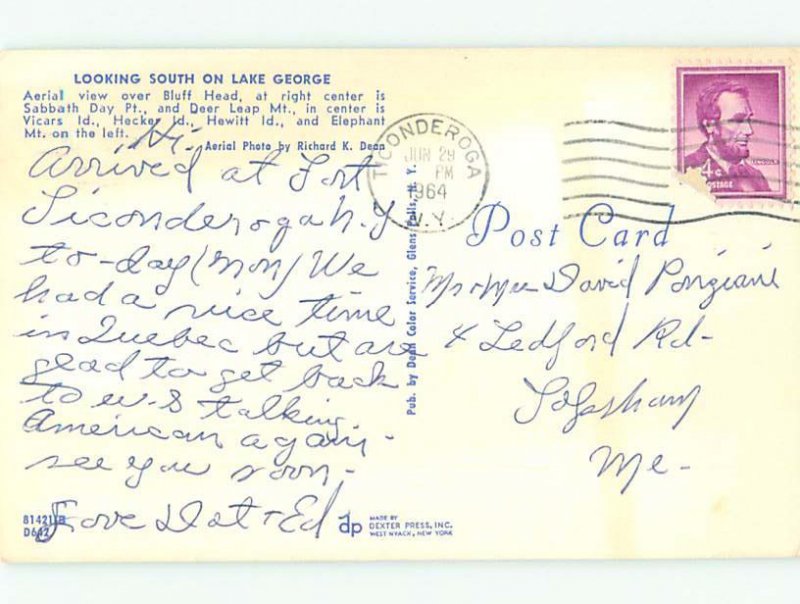 LOOKING SOUTH ON LAKE GEORGE
Aerial view over Bluff Head, at right center is
Sabbath Day Pt., and Deer Leap Mt., in center is
Vicars Id., Hecker Id., Hewitt Id., and Elephant
Mt. on the left.
Aerial Photo by Richard K. Dean
Hi.
Arrived at Fort
Ticonderoga N.Y
to-day (Mon) We
had a nice time
in Quebec but are
glad to get back
to U.S talking
American again-
see you soon-
Love Dot + Ed
81421
D642
dp
MADE BY
DEXTER PRESS, INC.
WEST NYACK, NEW YORK
Pub. by Dean Color Service, Glens Falls, N. Y.
TICONDEROGA
JUN 29
PM
1964
N.Y.
4¢
LINCOLN
POSTAGE
Post Card
Mr + Mrs David
4 Ledford Rd-
Me-